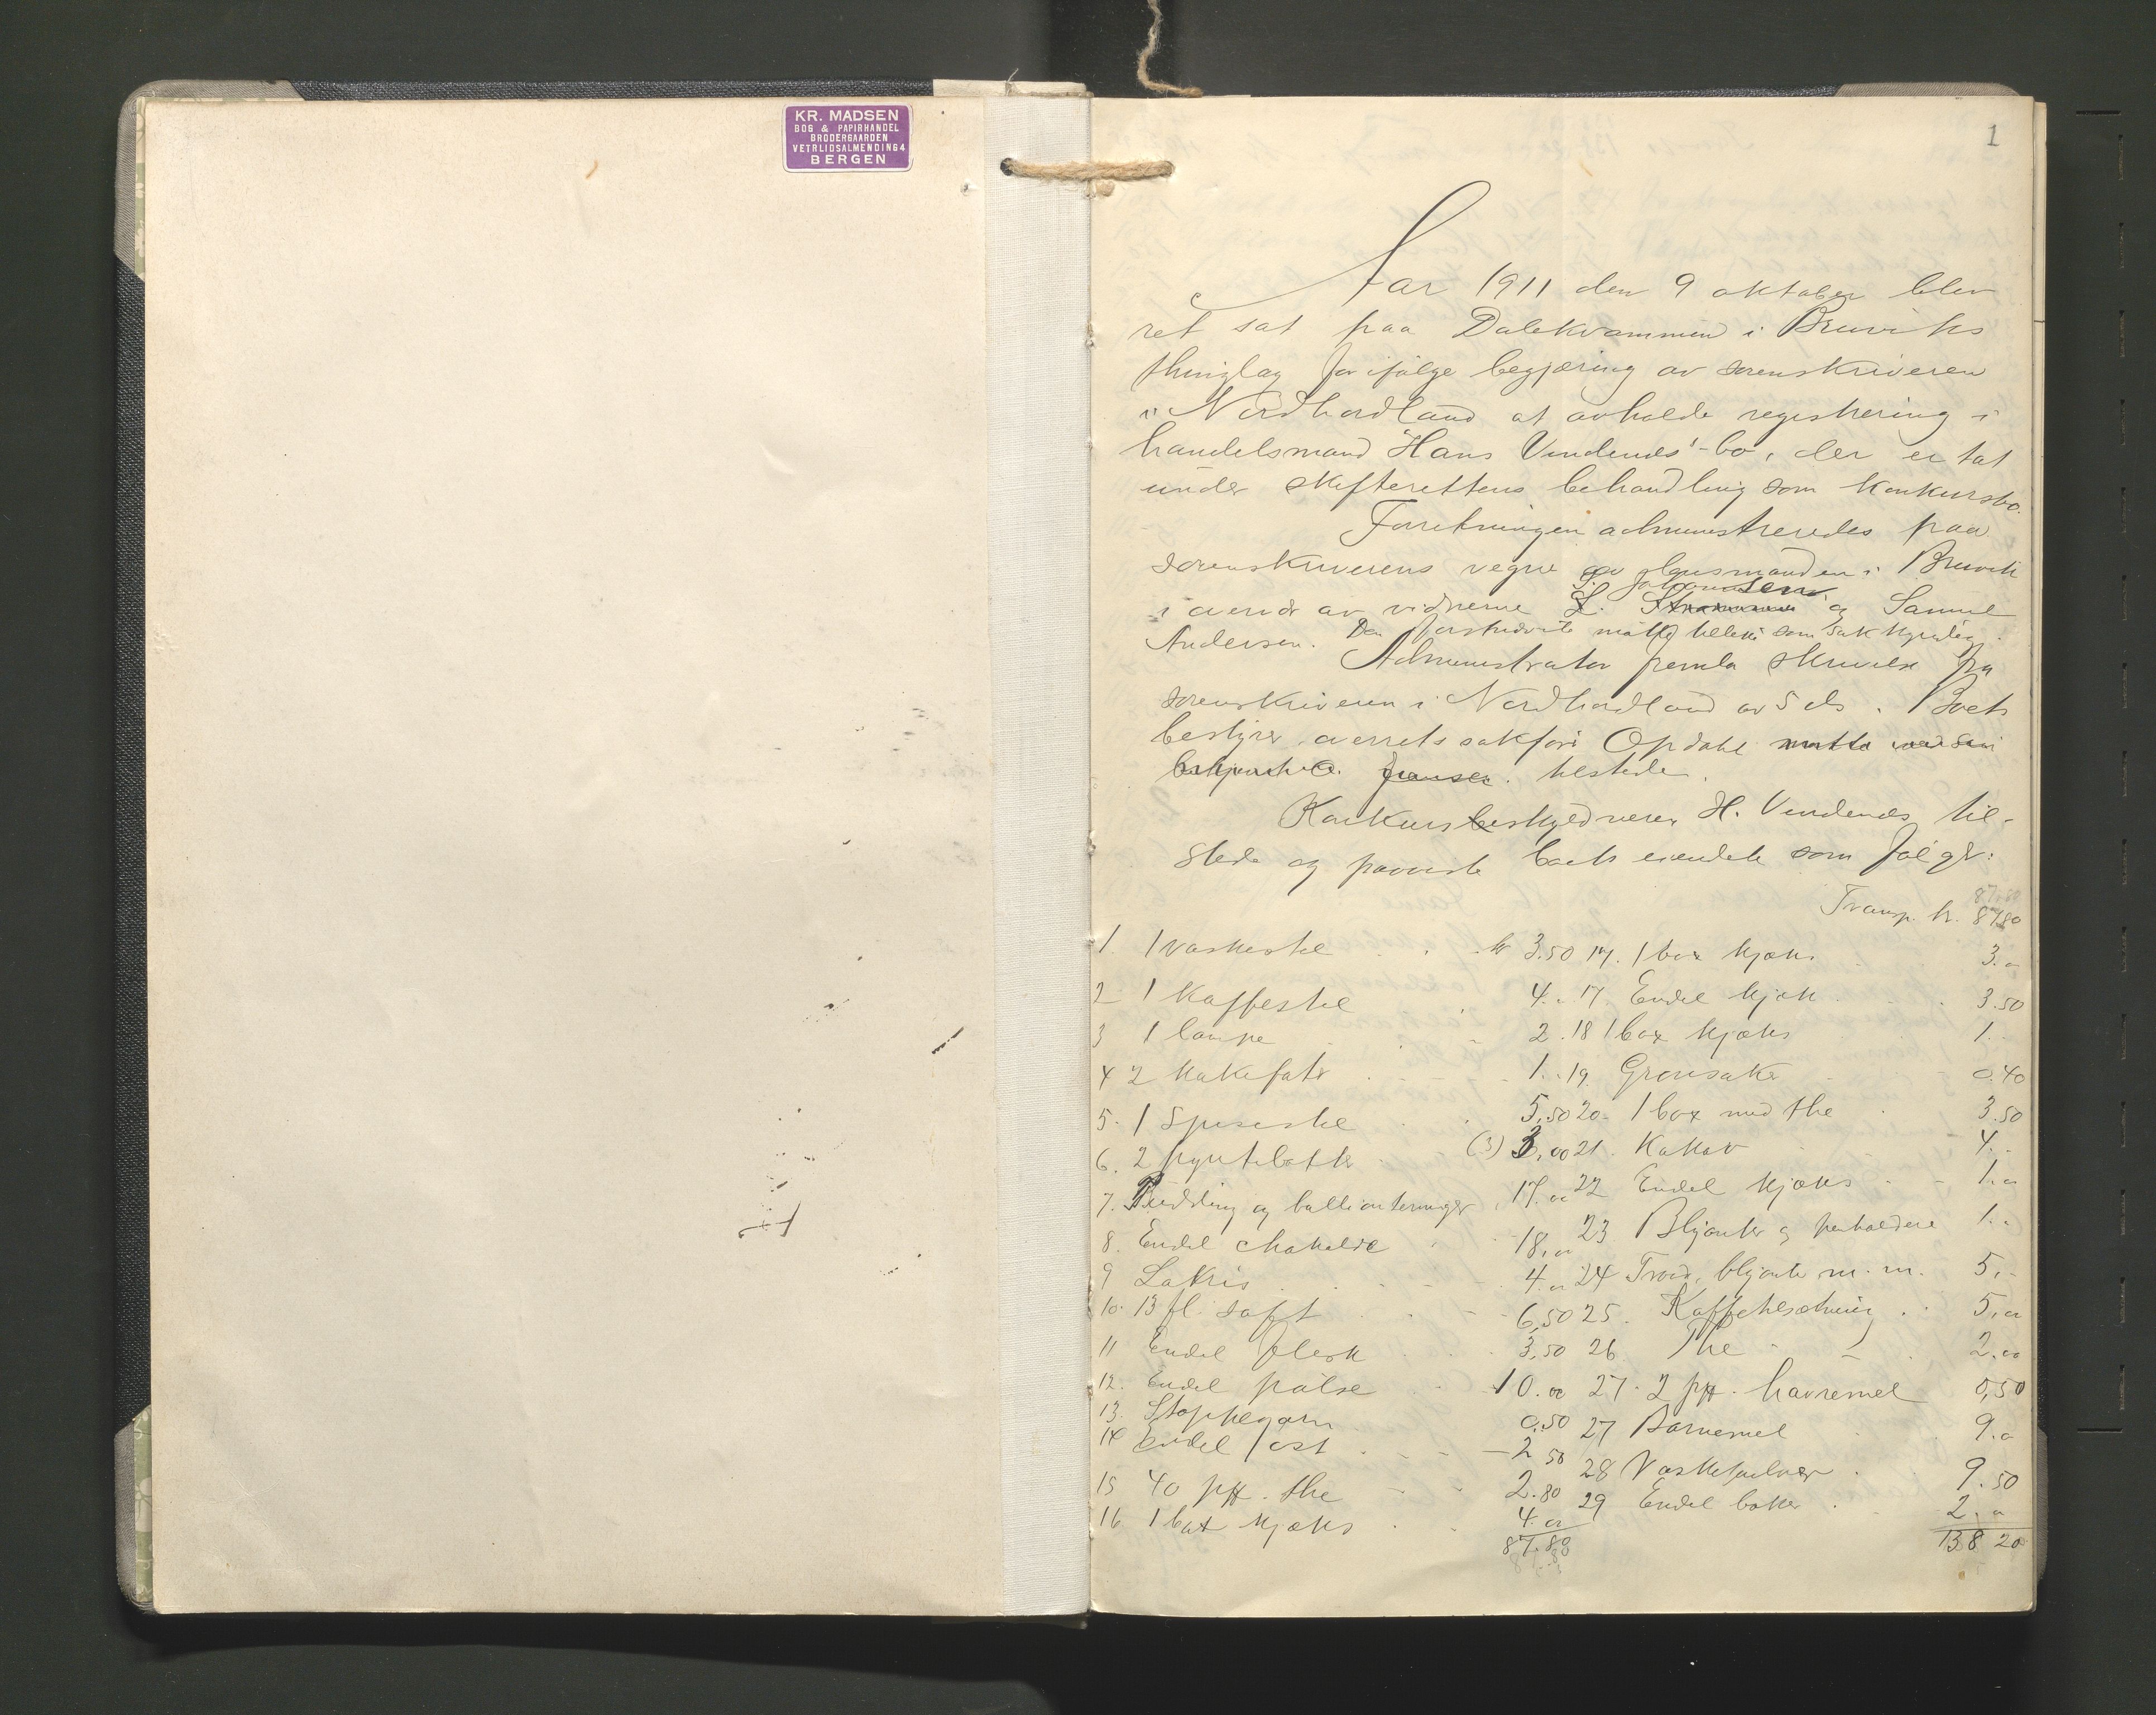 KR. MADSEN
BOG & PAPIRHANDEL
BRODERGAARDEN
VETRLIDSALMENDING 4
BERGEN
1
Aar 1911 den 9 oktober blev
ret sat paa Dalekvammen i Bruviks
thinglag for ifølge begjæring av sorenskriveren
i Nordhordland at avholde registrering i
handelsmand Hans Vendenes'-bo, der er tat
under skifterettens behandling som konkursbo.
Forretningen administreredes paa
sorenskriverens vegne av lensmanden i Bruvik
i overvær av vidnerne og Samuel
Andersen. Den førstnævnte møtte tillike som sakkyndig.
Administrator fremla skrivelse fra
sorenskriveren i Nordhordland av 5 ds. Boets
bestyrer overretssakfører Opdahl
tilstede.
Konkursskyldneren H. Vendenes til-
stede og paaviste boets eiendele som følger:
Transp. kr. 87.80
1. 1 vaskestel kr 3.50
2. 1 Kaffestel 4.
3 1 lampe 2.
4 2 kakefat 1.
5. 1 Spisestel 5,50
6. 2 pyntebotter (3) 3,00
7. Pudding og bullionterninger 17.00
8. Endel chokolade 18,00
9 Lakris 4.00
10. 13 fl. saft 6,50
11 Endel flesk 3,50
12. Endel pølse 10.00
13. Stoppegarn 0.50
14 Endel ost 2 50
15 40 pk. the 2.80
16 1 box kjæks 4.00
87.80
17. 1 box kjæks 3.00
17. Endel kjæks 3.50
18 1 box kjæks 1.
19. Grønsaker 0.40
20. 1 box med the 3.50
21. Kakao 4.
22 Endel kjæks 1.00
23 Blyanter og penholdere 1.
24 Traad, blyanter m. m. 5.
25. Kaffetilsætning 5,00
26 The 2.00
27. 2 pk. havremel 0,50
27 Barnemel 9.0
28 Vaskepulver 9.50
29 Endel bøker 2.0
138 20